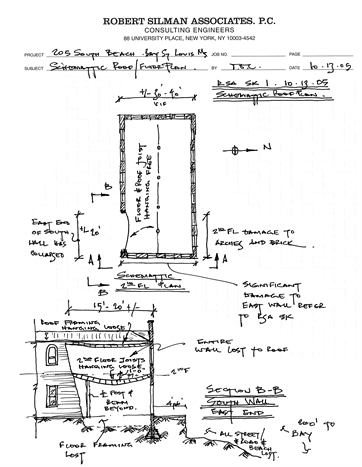 ROBERT SILMAN ASSOCIATES. P.C.
CONSULTING ENGINEERS
88 UNIVERSITY PLACE, NEW YORK, NY 10003-4542
PROJECT 205 SOUTH BEACH. BAY ST LOUIS MS JOB NO. PAGE
SUBJECT SCHEMATIC ROOF/FLOOR PLAN BY DATE 10.13.05
RSA SK 1. 10.13.05
SCHEMATIC ROOF PLAN.
V.I.F.
FLOOR & ROOF JOIST
HANGING FREE
N
B
EAST END
OF SOUTH
WALL HAS
+/- 20'
2nd FL DAMAGE TO
ARCHES AND BRICK.
A
A
B
SCHEMATIC
2nd FL PLAN
SIGNIFICANT
DAMAGE TO
EAST WALL REFER
TO RSA SK
15'- 20' +/-
ROOF FRAMING
HANGING LOOSE
2nd FLOOR JOISTS
HANGING LOOSE
ENTIRE
WALL LOST TO ROOF
2nd F
POST &
BEAM
BEYOND.
FLOOR FRAMING
LOST
SECTION B-B
SOUTH WALL
EAST END
ALL STREET/
ROAD &
BEACH
LOST.
TO
BAY